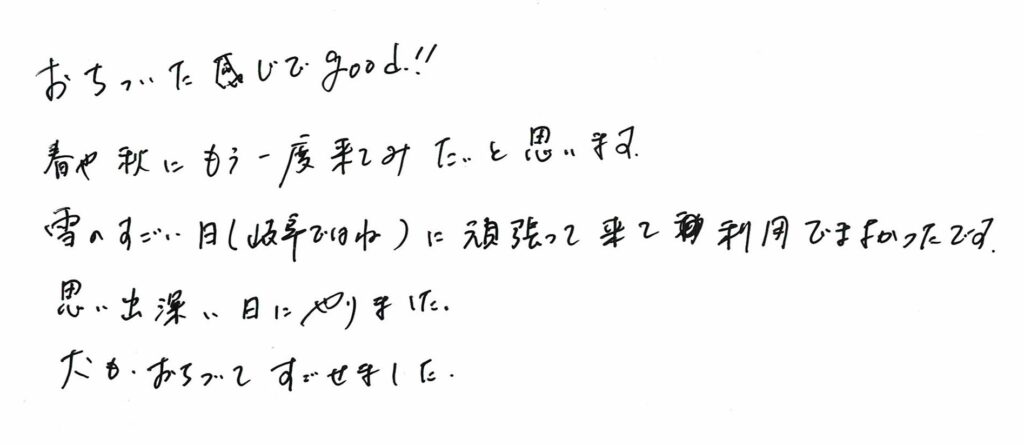 おちついた感じでgood.!!
春や秋にもう一度来てみたいと思います.
雪のすごい日(岐阜ではね)に頑張って来て利用できてよかったです.
思い出深い日になりました.
犬も.おちついてすごせました.